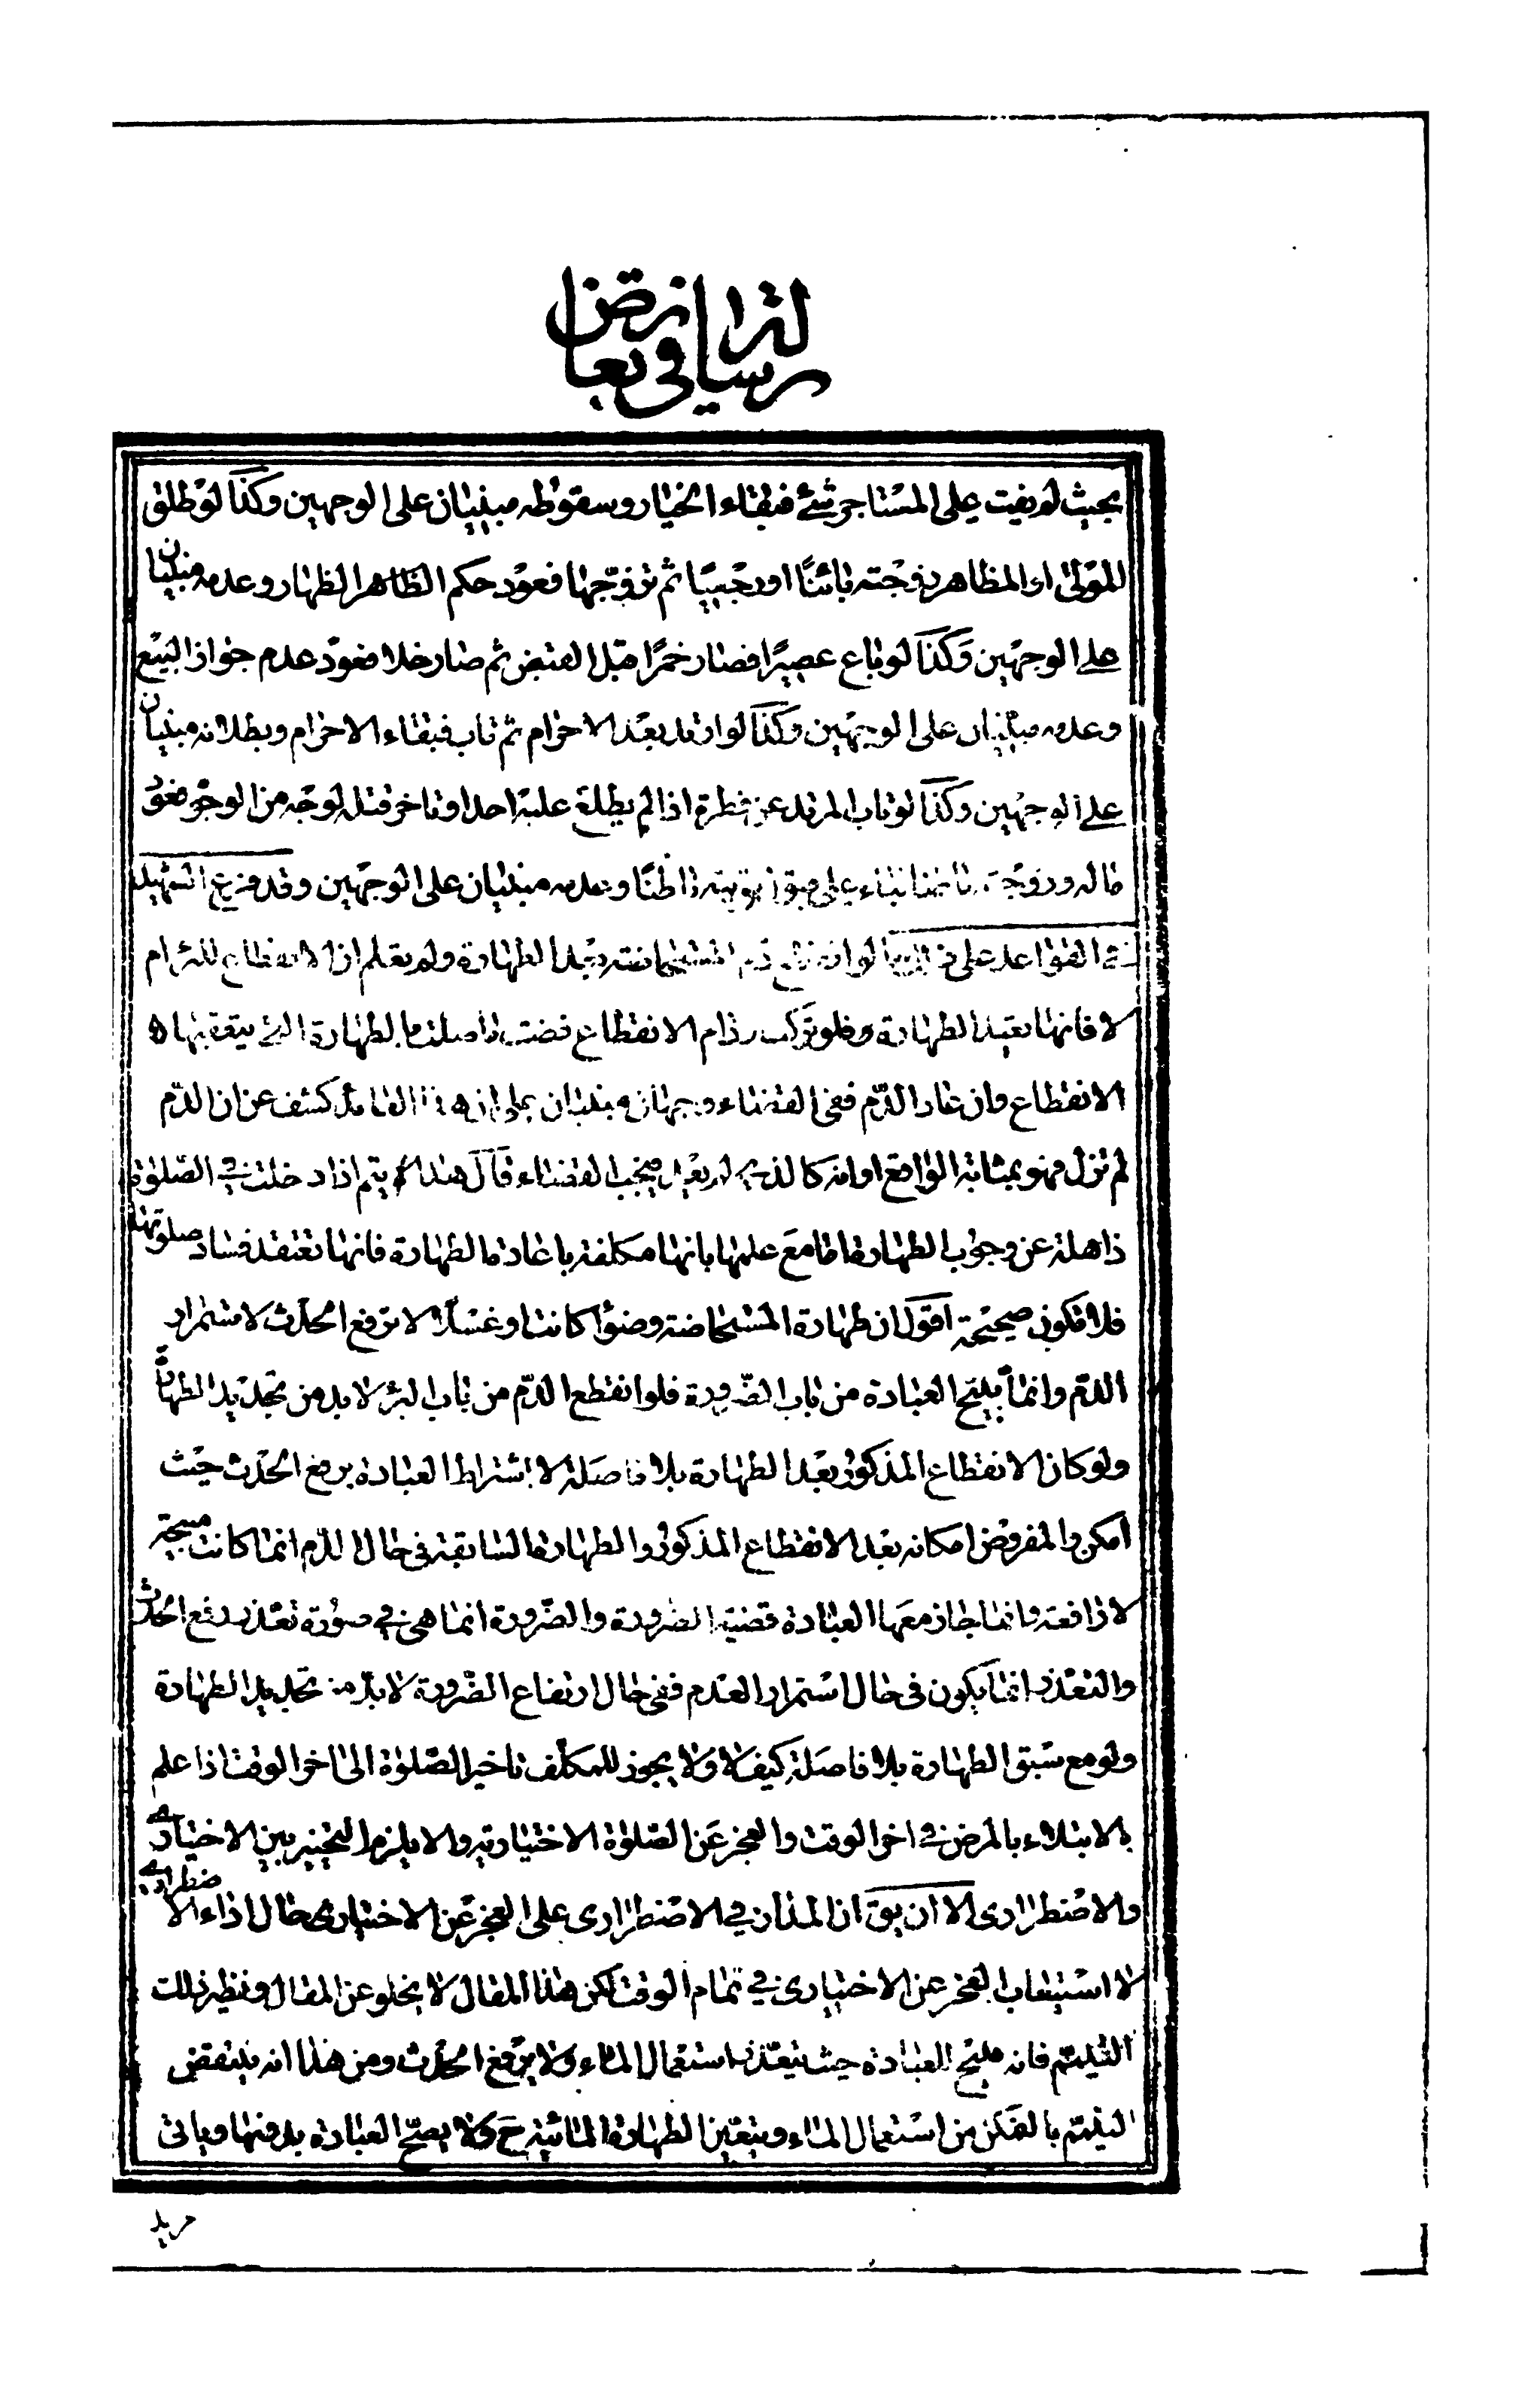 رسالة في تعارض
بحيث لم يفت على المستاجر شئ فبقاء الخيار وسقوطه مبنيان على الوجهين وكذا لو طلق
المولى او المظاهر زوجته بائنا او رجعيا ثم تزوجها فعود حكم الظاهر الظهار وعدمه مبنيان
على الوجهين وكذا لو باع عصيرا فصار خمرا قبل القبض ثم صار خلا فعود عدم جواز البيع
وعدمه مبنيان على الوجهين وكذا لو ارتد بعد الاحرام ثم تاب فبقاء الاحرام وبطلانه مبنيان
على الوجهين وكذا لو تاب المرتد عن فطرة اذا لم يطلع عليه احد او تاخر قتله لوجه من الوجوه فعود
ماله وزوجته بناء على قبول توبته باطنا وعدمه مبنيان على الوجهين وقد فرع الشهيد
في القواعد على لو انقطع دم المستحاضة بعد الطهارة ولم يعلم ان الانقطاع للبرء ام
لا فانها تعيد الطهارة فلو الانقطاع قضت ما صلت بالطهارة التي يتعقبها
الانقطاع وان عاد الدم ففي القضاء وجهان مبنيان على ان هذا العائد كشف عن ان الدم
لم تزل فهو بمثابة الواقع او انه كالذي لم يعد فيجب القضاء قال هذا لا يتم اذا دخلت في الصلوة
ذاهلة عن وجوب الطهارة اما مع علمها بانها مكلفة باعادة الطهارة فانها تعتقد فساد صلوتها
فلا تكون صحيحة اقول ان طهارة المستحاضة وضؤا كانت او غسلا لا ترفع الحدث لاستمرار
الدم وانما يبيح العبادة من باب الضرورة فلو انقطع الدم من باب البرء لا بد من تجديد الطهارة
ولو كان الانقطاع المذكور بعد الطهارة بلا فاصلة لاشتراط العبادة برفع الحدث حيث
امكن والمفروض امكانه بعد الانقطاع المذكور والطهارة السابقة في حال الدم انما كانت مبيحة
لا رافعة وانما جاز معها العبادة قضية الضرورة والضرورة انما هي في صورة تعذر رفع الحدث
والتعذر انما يكون في حال استمرار العدم ففي حال ارتفاع الضرورة لا بد من تجديد الطهارة
ولو مع سبق الطهارة بلا فاصلة كيف لا ولا يجوز للمكلف تاخير الصلوة الى اخر الوقت اذا علم
بالابتلاء بالمرض في اخر الوقت والعجز عن الصلوة الاختيارية والا يلزم التخيير بين الاختياري
والاضطراري الا ان يق ان المدار في الاضطراري على العجز عن الاختياري حال اداء الاضطراري
لا استيعاب العجز عن الاختياري في تمام الوقت لكن هذا المقال لا يخلو عن المقال ونظير ذلك
التيمم فانه مبيح للعبادة حيث يتعذر استعمال الماء ولا يرفع الحدث ومن هذا انه ينتقض
التيمم بالتمكن من استعمال الماء ويتعين الطهارة المائية ح ولا يصح العبادة بدونها وياتى
مزيد